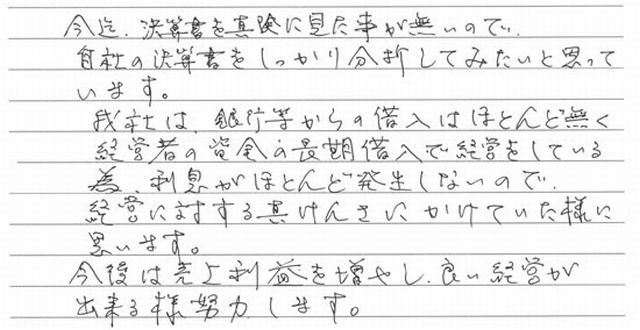 今迄、決算書を真険に見た事が無いので、
自社の決算書をしっかり分析してみたいと思って
います。
我社は、銀行等からの借入はほとんど無く
経営者の資金の長期借入で経営をしている
為、利息がほとんど発生しないので、
経営に対する真けんさにかけていた様に
思います。
今後は売上利益を増やし、良い経営が
出来る様努力します。